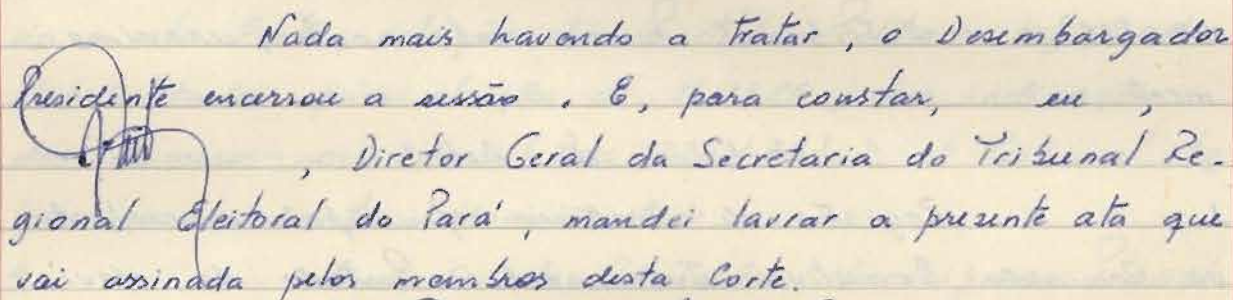 Nada mais havendo a tratar, o Desembargador
Presidente encerrou a sessão. E, para constar, eu,
, Diretor Geral da Secretaria do Tribunal Re-
gional Eleitoral do Pará, mandei lavrar a presente ata que
vai assinada pelos membros desta Corte.